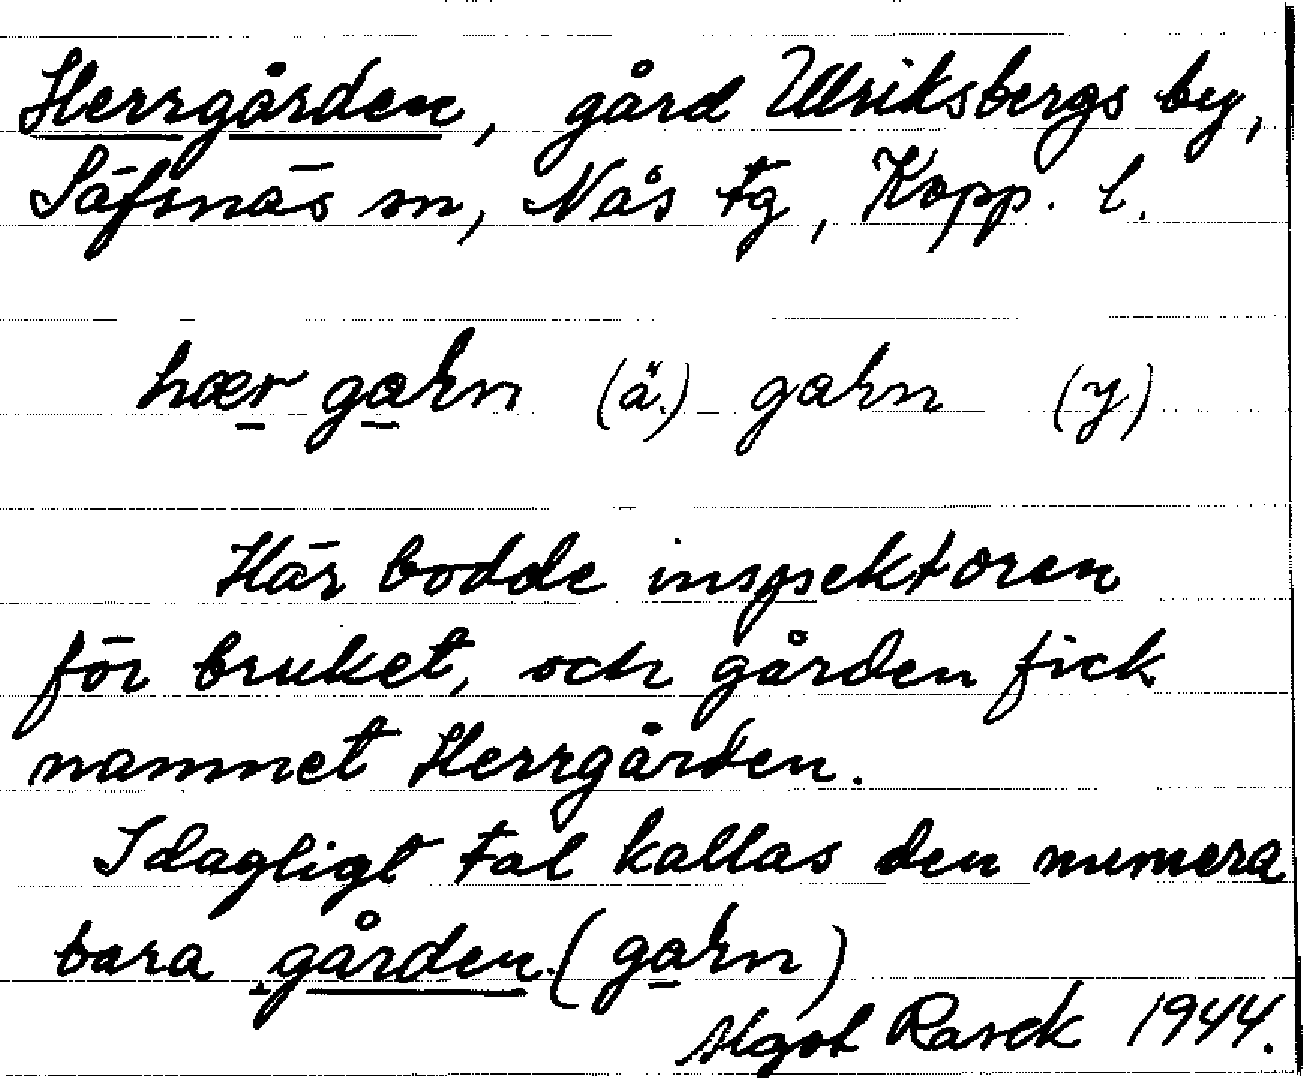 Herrgården, gård Ulriksbergs by,
Säfsnäs sn, Nås tg, Kopp. l.
hær gahn (ä.) gahn (y)
Här bodde inspektoren
för bruket, och gården fick
namnet Herrgården.
I dagligt tal kallas den numera
bara gården. (gahn)
Algot Rask 1944.